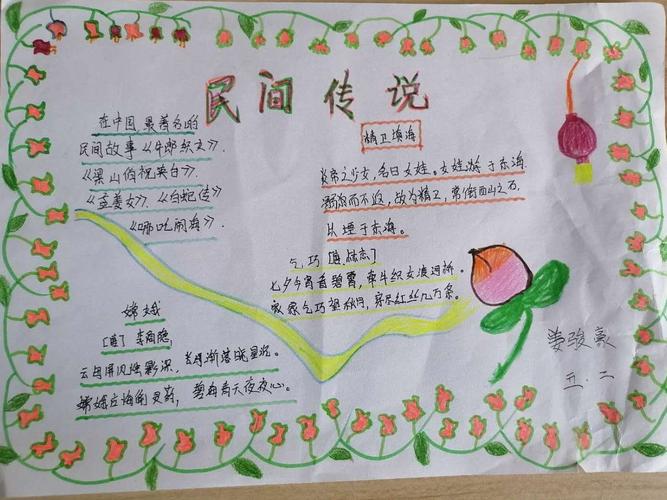 民间传说
在中国最著名的
民间故事《牛郎织女》.
《梁山伯祝英台》.
《孟姜女》.《白蛇传》
《哪吒闹海》.
精卫填海
炎帝之少女,名曰女娃,女娃游于东海
溺而不返,故为精卫,常衔西山之石
以堙于东海。
乞巧[唐 林杰]
七夕今宵看碧霄,牵牛织女渡河桥。
家家乞巧望秋月,穿尽红丝几万条。
嫦娥
[唐]李商隐
云母屏风烛影深,长河渐落晓星沉。
嫦娥应悔偷灵药,碧海青天夜夜心。
姜骏豪
五.二